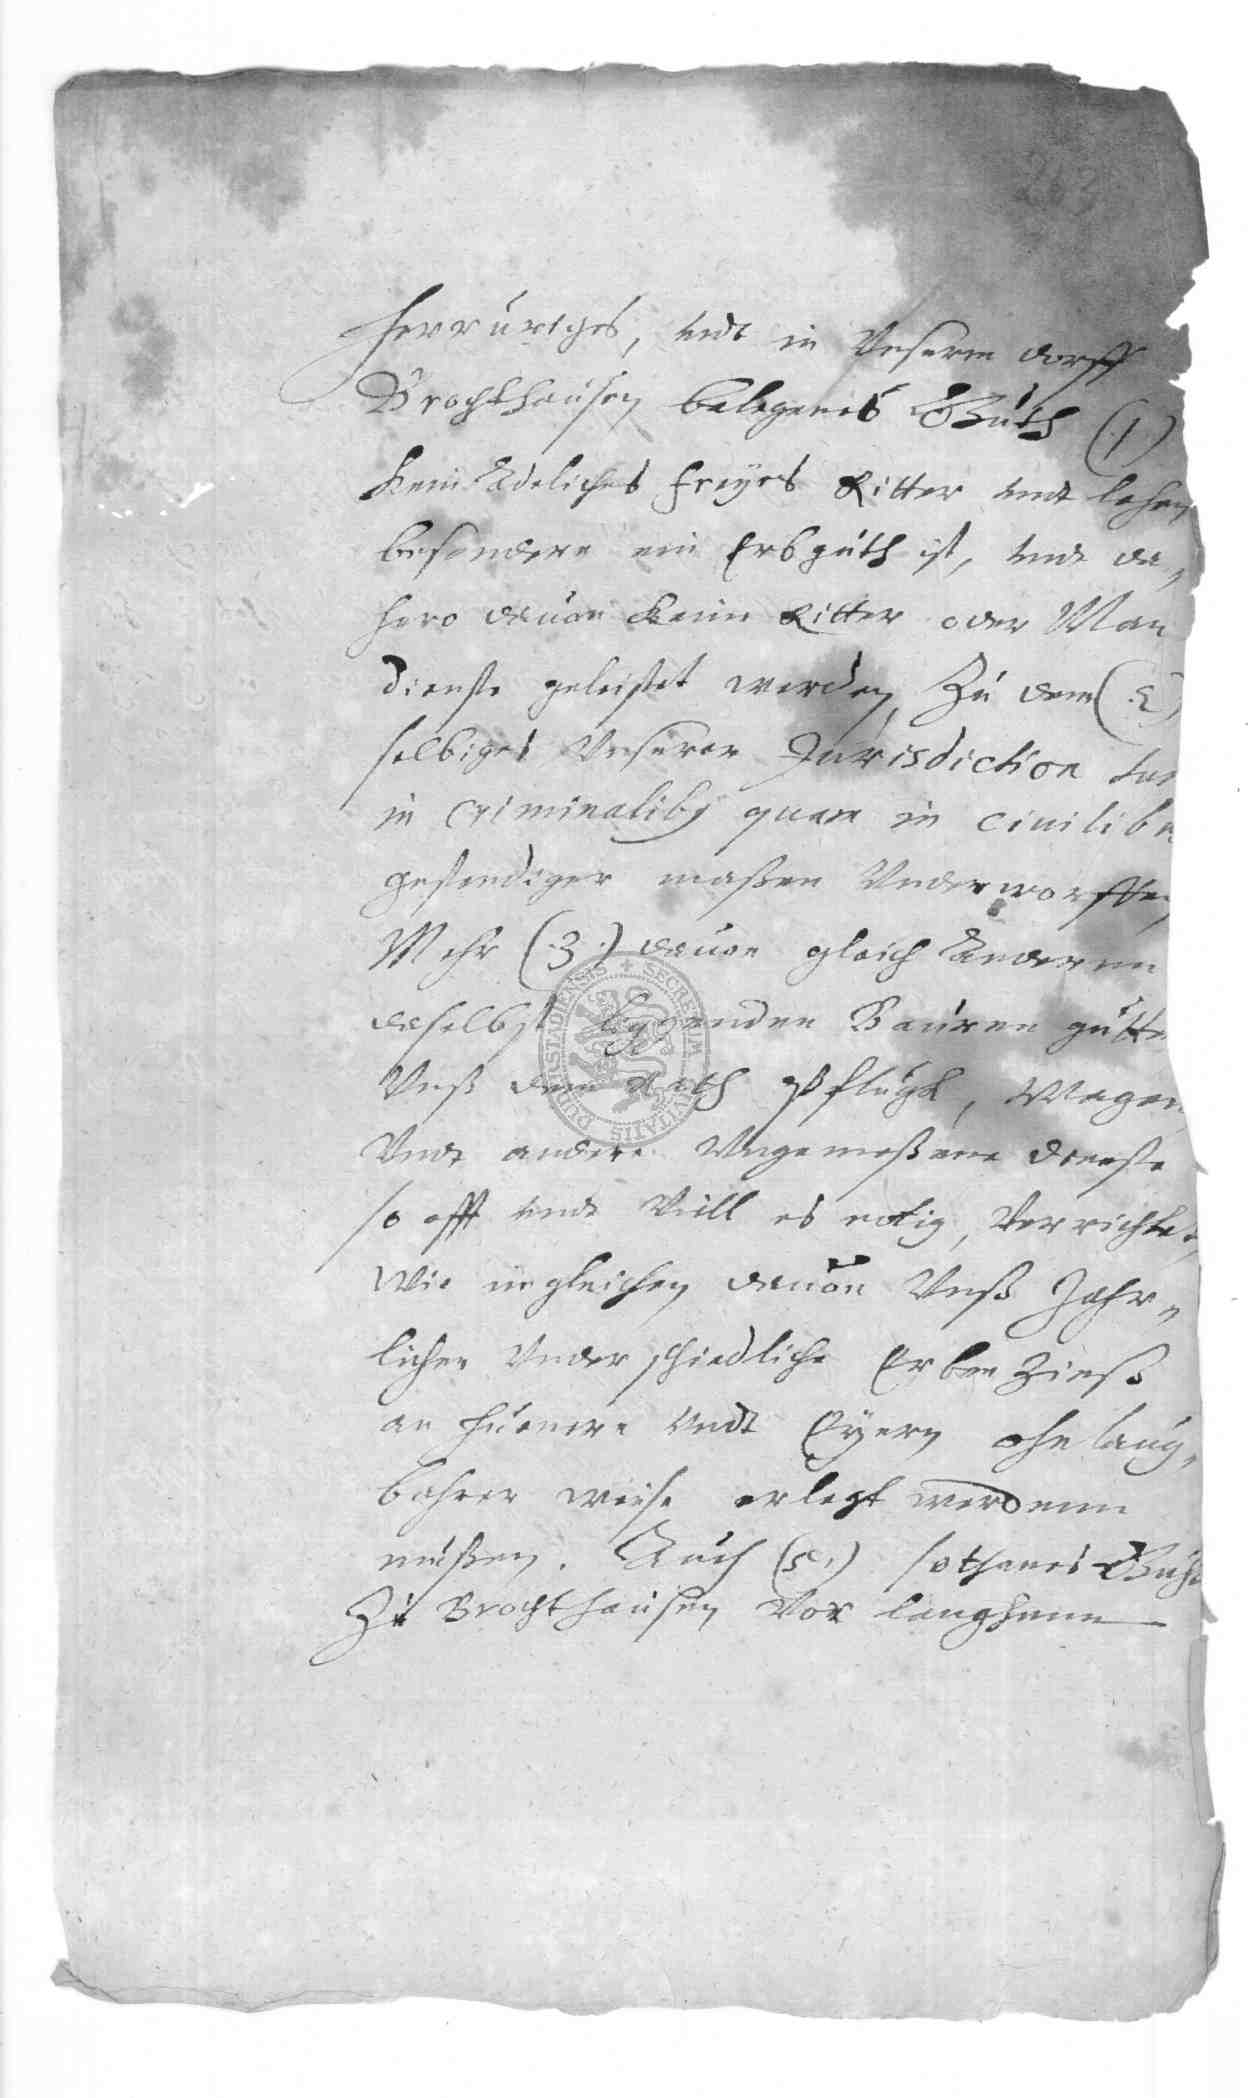 263
herruriges, undt in Unserm dorff
Brochthausen belegenes Guth (1)
Kein Adeliches freyes Ritter undt lehen
besondern ein Erbguth ist, undt da„
hero dauon Keine Ritter oder Man
dienste geleistet werden, Zu dem (2)
selbiges Unserer Jurisdiction tam
in Criminalibus quam in ciuilibus
gestendiger maßen Underworffen
Mehr (.3.) dauon gleich Anderenn
daselbst ligenden Bauren gütter
Unß dem Rath Pflugk, Wagen
Undt andere Ungemeßene dienste
so offt undt Vill es nötig, Verrichtet,
Wie ingleichen dauon Unß Jahr„
lichen Underschiedliche Erben Zinß
an huenern Undt Eyern ohnlaug„
bahrer weise erlegt werdenn
müßen. Auch (5.) sothanes Guht
Zu Brochthausen Vor langhenn
SECRETUM CIVITATIS DUDERSTADIENSIS